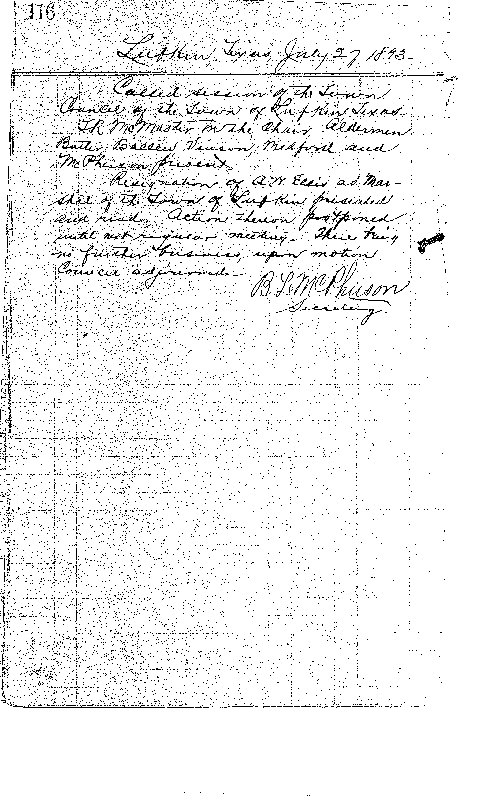 116
Lufkin, Texas, July 27 1893
Called session of the Town
Council of the Town of Lufkin Texas
McMaster in the chair, Aldermen
Butler, Vinson, Medford and
McPherson present.
Resignation of A W Ellis as Mar-
shal of the Town of Lufkin presented
and read. Action thereon postponed
until next regular meeting. There being
no further business, upon motion
Council adjourned.
B. L. McPherson
Secretary